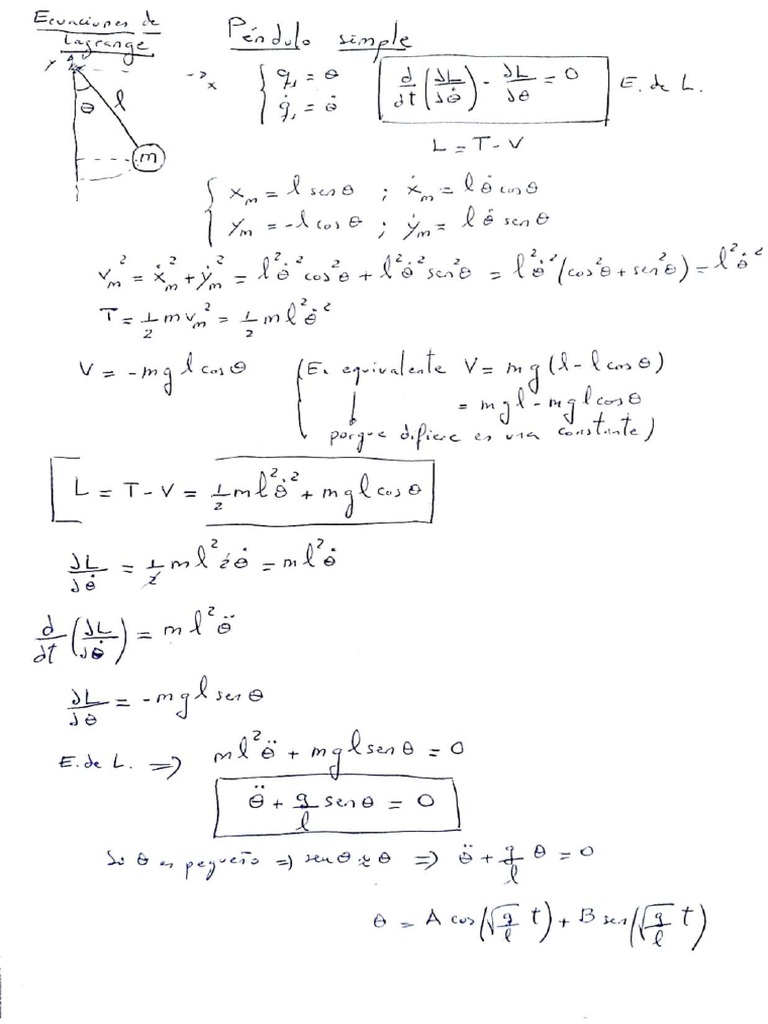 Ecuaciones de Lagrange
Péndulo simple
y
x
θ
l
m
{ q₁ = θ
{ q̇₁ = θ̇
d/dt (∂L/∂θ̇) - ∂L/∂θ = 0   E. de L.
L = T - V
{ xₘ = l senθ ; ẋₘ = l θ̇ cosθ
{ yₘ = -l cosθ ; ẏₘ = l θ̇ senθ
vₘ² = ẋₘ² + ẏₘ² = l²θ̇² cos²θ + l²θ̇² sen²θ = l²θ̇² (cos²θ + sen²θ) = l²θ̇²
T = 1/2 m vₘ² = 1/2 m l²θ̇²
V = -mg l cosθ   (Es equivalente V = mg (l - l cosθ)
= mgl - mgl cosθ
↓
porque difiere en una constante)
L = T - V = 1/2 ml²θ̇² + mgl cosθ
∂L/∂θ̇ = 1/2 ml² 2θ̇ = ml²θ̇
d/dt (∂L/∂θ̇) = ml²θ̈
∂L/∂θ = -mgl senθ
E. de L. ⇒ ml²θ̈ + mgl senθ = 0
θ̈ + g/l senθ = 0
Si θ es pequeño ⇒ senθ ≈ θ ⇒ θ̈ + g/l θ = 0
θ = A cos(√(g/l) t) + B sen(√(g/l) t)